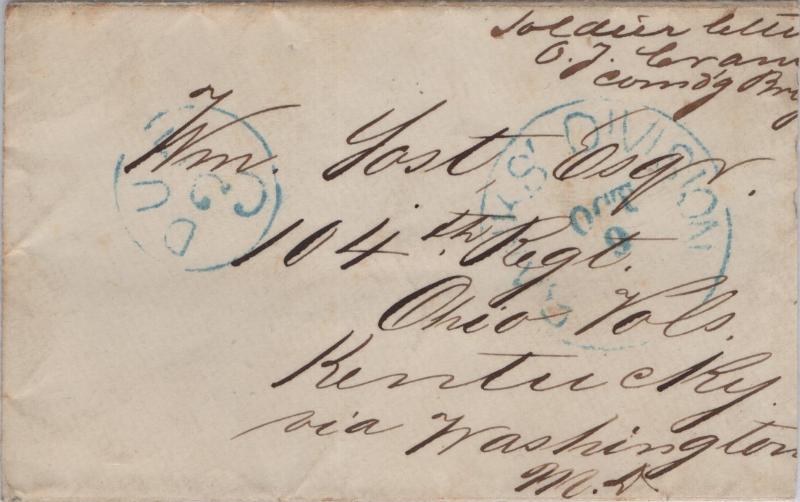 Soldier lette
O. J. Cran
Comd'g Brig
Wm. Yost, Esqr.
104th Regt.
Ohio Vols.
Kentucky.
via Washington
DUE
3
DIVISION
OCT
9